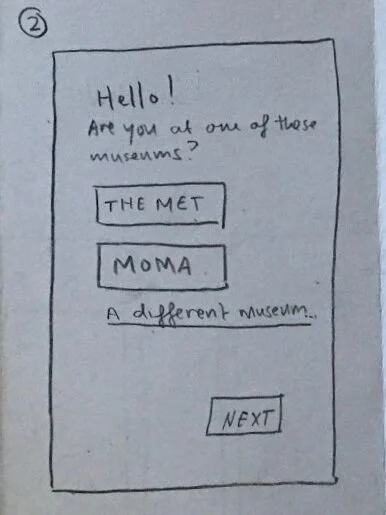 2
Hello!
Are you at one of those
museums?
THE MET
MOMA
A different museum...
NEXT